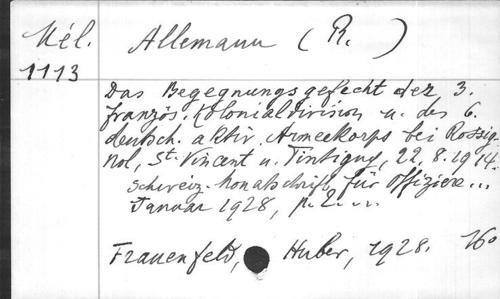 Mél.
1113
Allemann (R. )
Das Begegnungsgefecht der 3.
französ. Kolonialdivision u. des 6.
deutsch. aktiv. Armeekorps bei Rossig-
nol, St. Vincent u. Tintigny, 22. 8. 1914.
Schweiz. Monatschrift für Offiziere...
Januar 1928, p. 2....
Frauenfeld, Huber, 1928. 16º